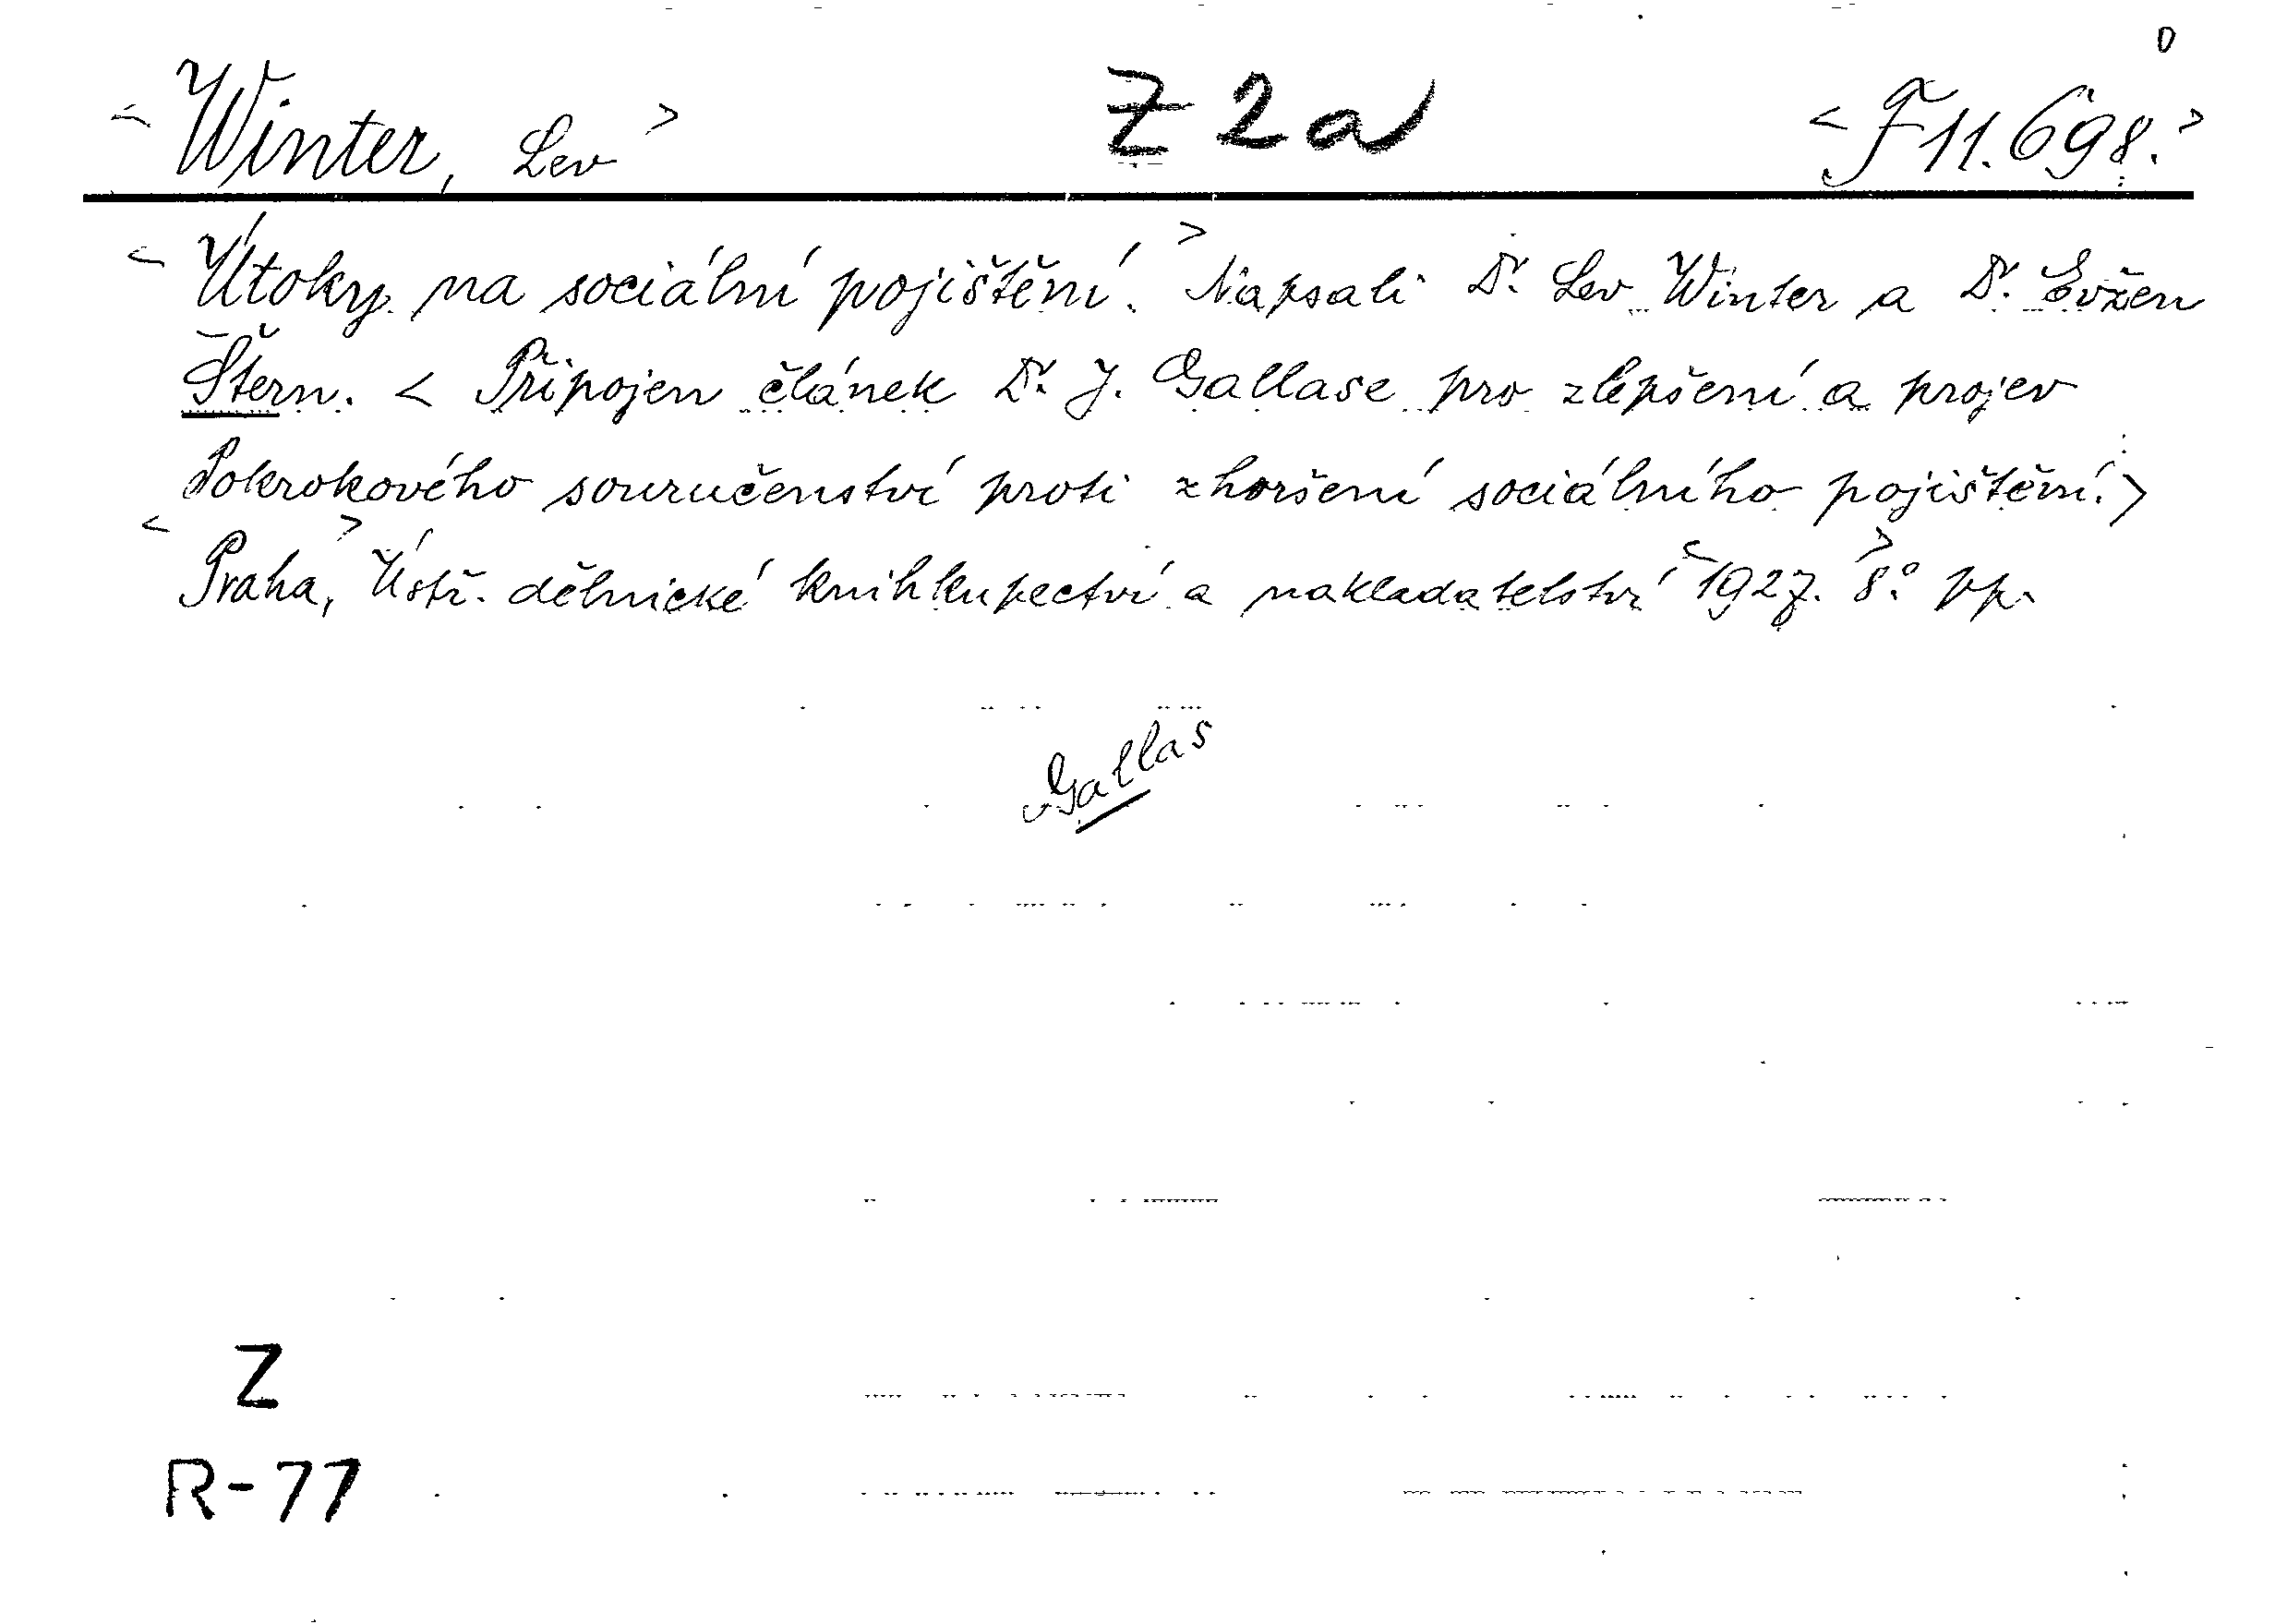 <Winter, Lev> Z 2a <F 11.698.>
<Útoky na sociální pojištění.> Napsali Dr. Lev Winter a Dr. Evžen
Štern. < Připojen článek Dr. J. Gallase pro zlepšení a projev
Pokrokového souručenství proti zhoršení sociálního pojištění.>
<Praha,> Ústř. dělnické knihkupectví a nakladatelství <1927.> 8.° pp.
Gallas
Z
R-77